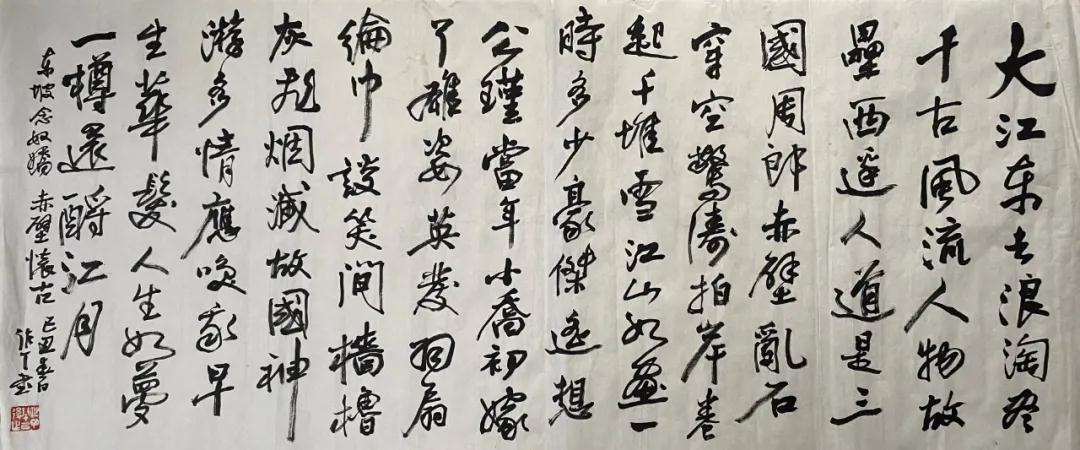 大江东去浪淘尽
千古風流人物故
壘西邊人道是三
國周郎赤壁亂石
穿空驚濤拍岸卷
起千堆雪江山如畫一
時多少豪傑遙想
公瑾當年小喬初嫁
了雄姿英發羽扇
綸巾談笑間檣櫓
灰飛烟滅故國神
游多情應笑我早
生華髮人生如夢
一樽還酹江月
东坡念奴嬌赤壁懷古己丑春日